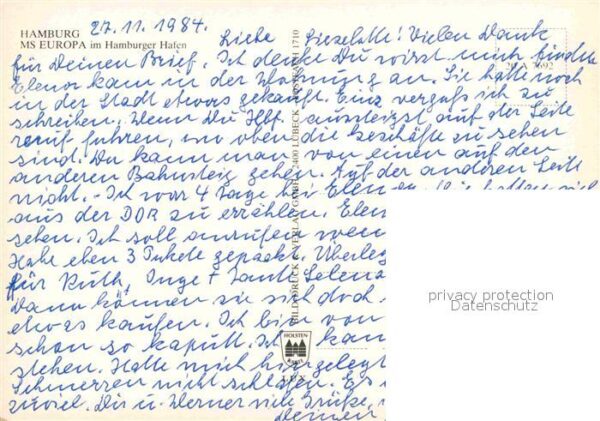 HAMBURG
MS EUROPA im Hamburger Hafen
27.11.1984.
Liebe Gieselotte! Vielen Dank
für Deinen Brief. Ich denke Du wirst mich finden
Elenor kam in der Wohnung an. Sie hatte noch
in der Stadt etwas gekauft. Eins vergaß ich zu
schreiben. Wenn Du Hbf. aussteigst, auf der Seite
rauf fahren, wo oben die Geschäfte zu sehen
sind. Da kann man von einen auf den
anderen Bahnsteig gehen. Auf der anderen Seite
nicht. - Ich war 4 Tage bei Elenor.
aus der DDR zu erzählen. Elen
sehen. Ich soll anrufen wen
Habe eben 3 Pakete gepackt. Überleg
für Ruth, Inge + Tante Lelena
Dann können sie sich doch
etwas kaufen. Ich bin von
schon so kaputt. Ich kan
stehen. Hatte mich hingelegt
Schmerzen nicht schlafen. Es
zuviel. Dir u. Werner viele Grüße,
Deinen
BILD DRUCK VERLAG 2400 LÜBECK
H 1710
HOLSTEN
LUX
privacy protection
Datenschutz